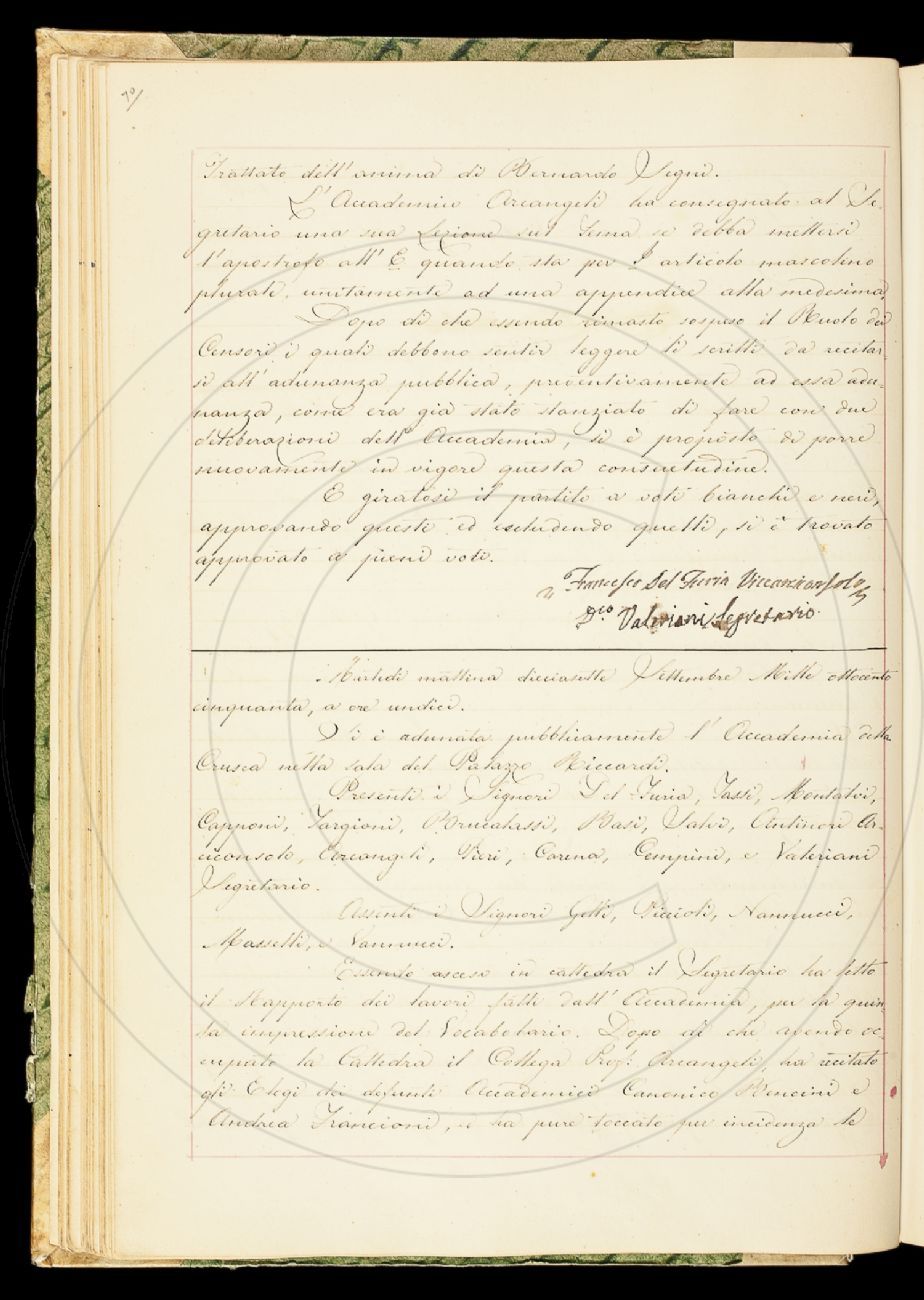 70/
Trattato dell'anima di Bernardo Segni.
L'Accademico Arcangeli ha consegnato al Se-
gretario una sua Lezione sul Tema se debba mettersi
l'apostrofo all'E quando sta per I articolo mascolino
plurale, unitamente ad una appendice alla medesima.
Dopo di che essendo rimasto sospeso il Ruolo dei
Censori i quali debbono sentir leggere li scritti da recitar-
si all'adunanza pubblica, preventivamente ad essa adu-
nanza, come era già stato stanziato di fare con due
deliberazioni dell'Accademia, si è proposto di porre
nuovamente in vigore questa consuetudine.
E giratosi il partito a voti bianchi e neri,
approvando questi ed escludendo quelli, si è trovato
approvato a pieni voti.
Francesco Del Furia Vicearciconsolo
Dco Valeriani Segretario
Martedì mattina diciasette Settembre Mille ottocento
cinquanta, a ore undici.
Si è adunata pubblicamente l'Accademia della
Crusca nella sala del Palazzo Riccardi.
Presenti i Signori Del Furia, Tassi, Montalvi,
Capponi, Targioni, Brucalassi, Basi, Salvi, Antinori Ar-
ciconsolo, Arcangeli, Pieri, Carena, Cempini, e Valeriani
Segretario.
Assenti i Signori Gelli, Piccioli, Nannucci,
Masselli, e Vannucci.
Essendo asceso in cattedra il Segretario ha letto
il Rapporto dei lavori fatti dall'Accademia, per la quin-
ta impressione del Vocabolario. Dopo di che avendo oc-
cupato la Cattedra il Collega Prof: Arcangeli, ha recitato
gli Elogi dei defunti Accademici Canonico Bencini e
Andrea Francioni, e ha pure toccato per incidenza le